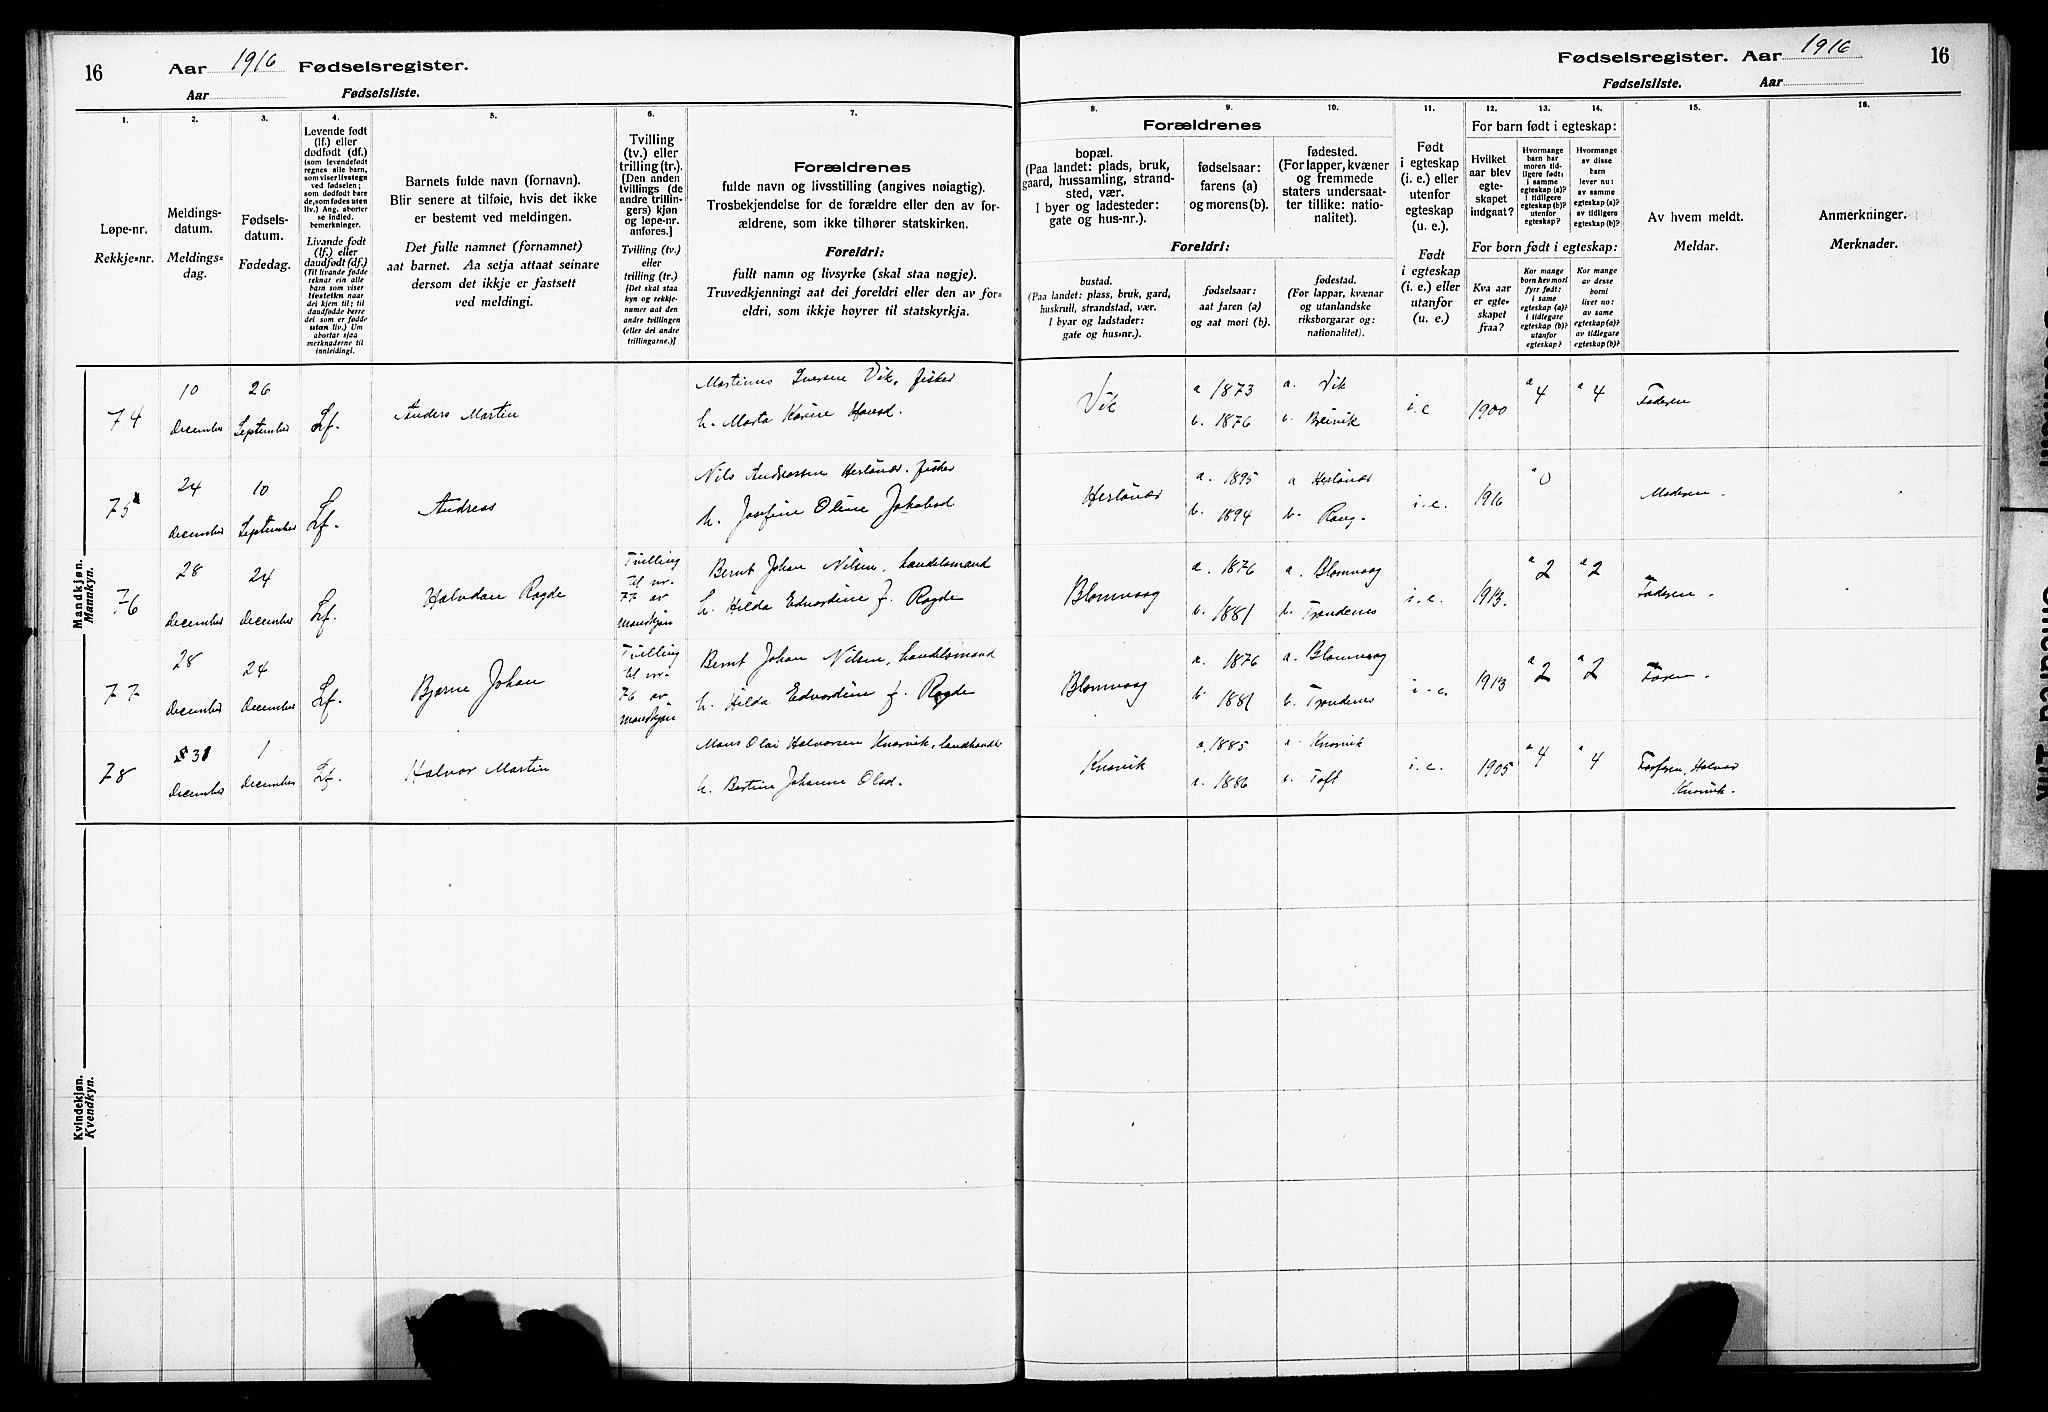 16 Aar 1916 Fødselsregister.
Aar Fødselsliste.
Fødselsregister. Aar 1916 16
Fødselsliste. Aar
1.
2.
3.
4.
5.
6.
7.
8.
9.
10.
11.
12.
13.
14.
15.
16.
Løpe-nr.
Rekkje-nr.
Meldings-
datum.
Meldings-
dag.
Fødsels-
datum.
Fødedag.
Levende født
(lf.) eller
dødfødt (df.)
(som levendefødt
regnes alle barn,
som viser livstegn
ved fødselen;
som dødfødt bare
de, som fødes uten
liv.) Ang. aborter
se indled.
bemerkninger.
Livande født
(lf.) eller
daudfødt (df.)
(Til livande fødde
reknar ein alle
barn som viser
livsteikn naar
dei kjem til; til
daudfødde berre
dei som er fødde
utan liv.) Um
abortar sjaa
merknaderne til
innleidingi.
Barnets fulde navn (fornavn).
Blir senere at tilføie, hvis det ikke
er bestemt ved meldingen.
Det fulle namnet (fornamnet)
aat barnet. Aa setja attaat seinare
dersom det ikkje er fastsett
ved meldingi.
Tvilling
(tv.) eller
trilling (tr.).
[Den anden
tvillings (de
andre trillin-
gers) kjøn
og løpe-nr.
anføres.]
Tvilling (tv.)
eller
trilling (tr.)
[Det skal staa
kyn og rekkje-
numer aat den
andre tvillingen
(eller dei andre
trillingarne.)]
Forældrenes
fulde navn og livsstilling (angives nøiagtig).
Trosbekjendelse for de forældre eller den av for-
ældrene, som ikke tilhører statskirken.
Foreldri:
fullt namn og livsyrke (skal staa nøgje).
Truvedkjenningi aat dei foreldri eller den av for-
eldri, som ikkje høyrer til statskyrkja.
Forældrenes
bopæl.
(Paa landet: plads, bruk,
gaard, hussamling, strand-
sted, vær.
I byer og ladesteder:
gate og hus-nr.).
fødselsaar:
farens (a)
og morens (b).
fødested.
(For lapper, kvæner
og fremmede
staters undersaat-
ter tillike: natio-
nalitet).
Foreldri:
bustad.
(Paa landet: plass, bruk, gard,
huskrull, strandstad, vær.
I byar og ladstader:
gate og hus-nr.).
fødselsaar:
aat faren (a)
og aat mori (b).
fødestad.
(For lappar, kvænar
og utanlandske
riksborgarar og:
nationalitet).
Født
i egteskap
(i. e.) eller
utenfor
egteskap
(u. e.).
Født
i egteskap
(i. e.) eller
utanfor
(u. e.)
For barn født i egteskap:
Hvilket
aar blev
egte-
skapet
indgaat?
Hvormange
barn har
moren tid-
ligere født:
i samme
egteskap (a)?
i tidligere
egteskap (b)?
utenfor
egteskap?
Hvormange
av disse
barn
lever nu:
av samme
egteskap (a)?
av tidligere
egteskap (b)?
For born født i egteskap:
Kva aar
er egte-
skapet
fraa?
Kor mange
born hev mori
fyrr født:
i same
egteskap (a)?
i tidlegare
egteskap (b)?
utanfor
egteskap?
Kor mange
av desse
borni
liver no:
av same
egteskap (a)?
av tidlegare
egteskap (b)?
Av hvem meldt.
Meldar.
Anmerkninger.
Merknader.
Mandkjøn.
Mannkyn.
74 10 December 26 September Lf. Anders Martin
Martinus Iversen Vik, fisker
h. Marta Karine
Vik a 1873 b. 1876 a. Vik b. Breivik i.e 1900 a 4 a 4 Faderen
75 24 December 10 September Lf. Andreas
Nils Andreassen Herlövær. fisker
h. Josefine Oline Jakobsd
Herlövær a. 1895 b. 1894 a Herlövær b. Rong. i.e. 1916 a 0 Moderen.
76 28 December 24 December Lf. Halvdan Rogde
Tvilling
til nr.
77 av
mandkjön
Bernt Johan Nilsen, handelsmand
h. Hilda Edvardine f. Rogde
Blomvaag a. 1876 b. 1881 a. Blomvaag b. Trondenes i.e. 1913. a 2 a 2 Faderen.
77 28 December 24 December Lf. Bjarne Johan
Tvilling
til nr.
76 av
mandkjön
Bernt Johan Nilsen, handelsmand
h. Hilda Edvardine f. Rogde
Blomvaag a. 1876 b 1881 a. Blomvaag b. Trondenes i.e. 1913 a 2 a 2
78 31 December 1 December Lf. Halvor Martin
Mons Olai Halvorsen Knarvik, landhandler
h. Bertine Johanne Olsd.
Knarvik a. 1885 1886 a. Knarvik b. Toft i.e. 1905 a 4 a 4 Farfaren, Halvor
Knarvik.
Kvindekjøn.
Kvendkyn.